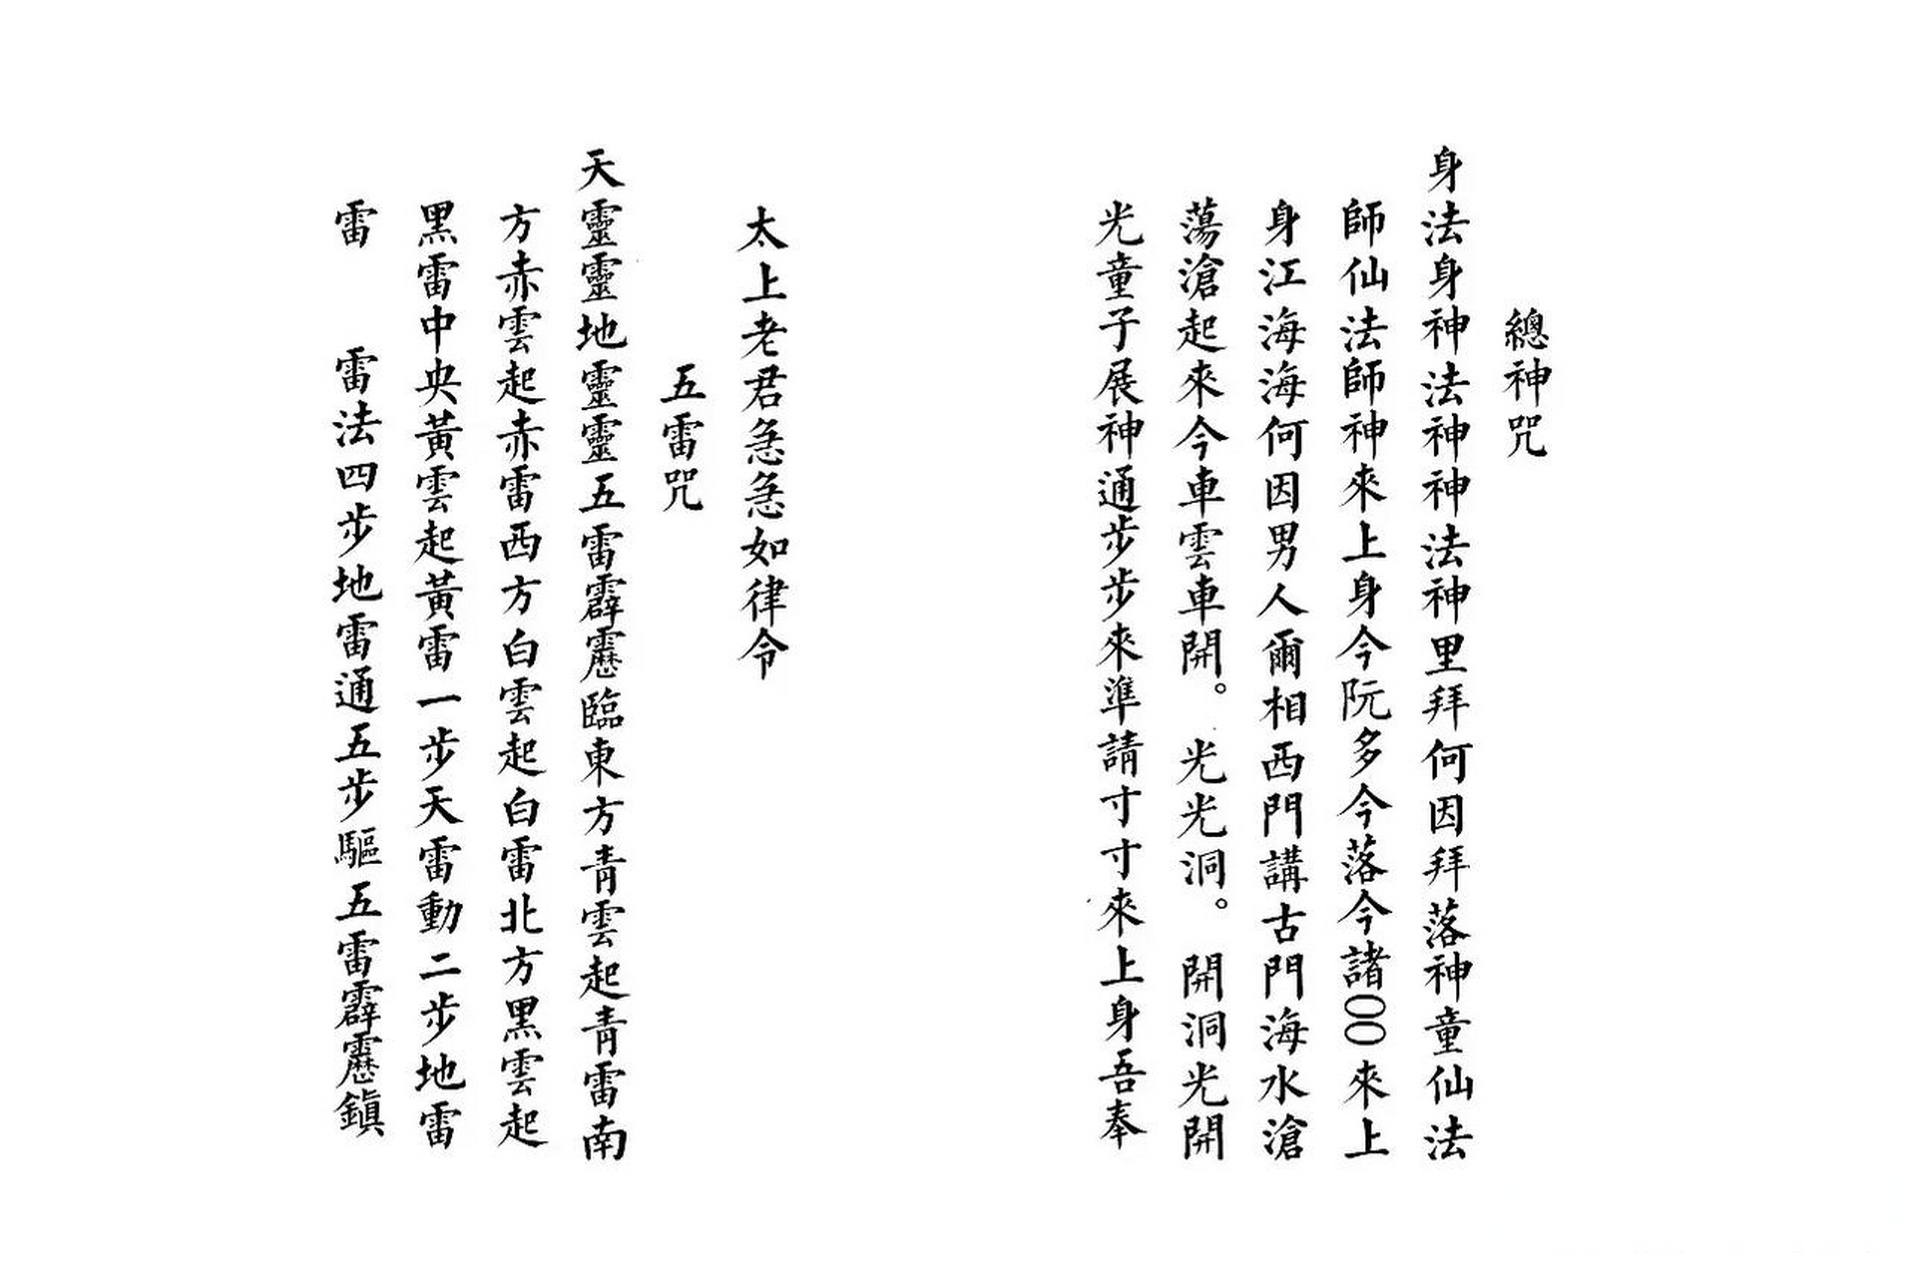 總神咒
身法身神法神神法神里拜何因拜落神童仙法
師仙法師神來上身今阮多今落今諸〇〇來上
身江海海何因男人爾相西門講古門海水滄
蕩滄起來今車雲車開。光光洞。開洞光開
光童子展神通步步來準請寸寸來上身吾奉
太上老君急急如律令
五雷咒
天靈靈地靈靈五雷霹靂臨東方青雲起青雷南
方赤雲起赤雷西方白雲起白雷北方黑雲起
黑雷中央黃雲起黃雷一步天雷動二步地雷
雷　雷法四步地雷通五步驅五雷霹靂鎮